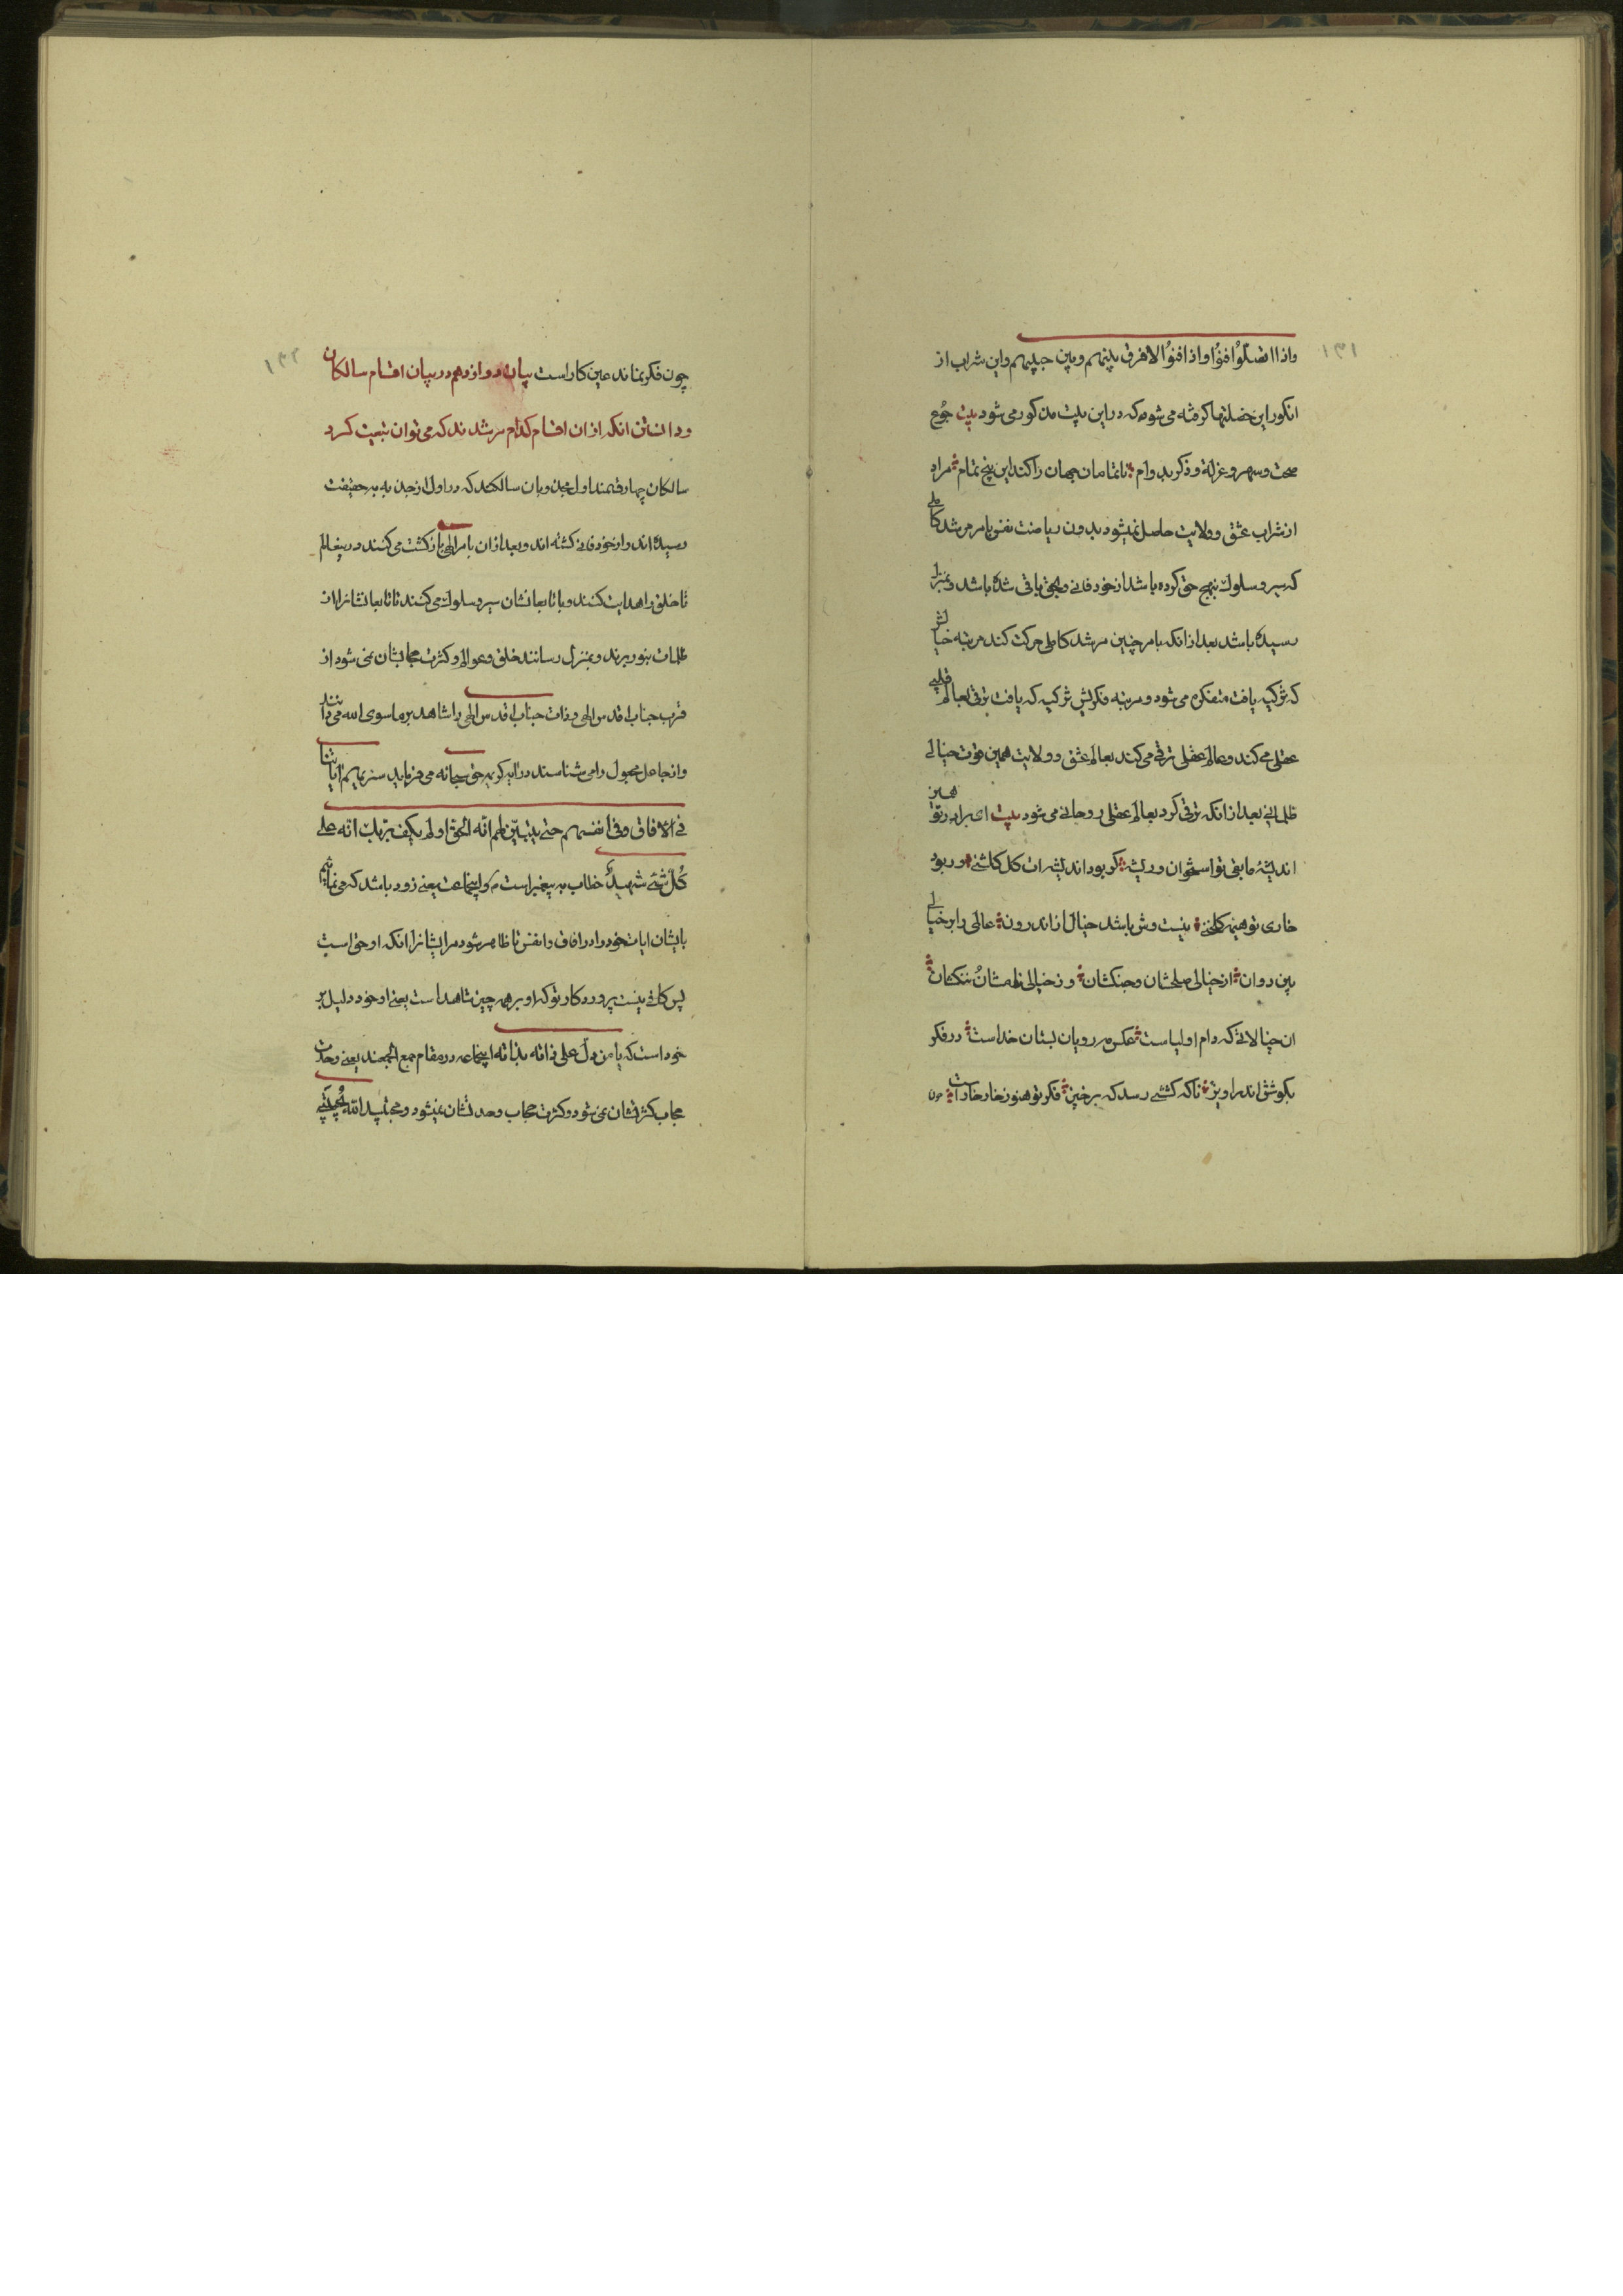 ۱۳۱
واذا اتصلوا افنوا واذا افنوا لا فرق بینهم وبین حبیبهم واین شراب از
انکور این خصلتها کرفته می شود که در این بیت مذکور می شود بیت جوع
صحت وسهر وعزلة وذکر بدوام ناتمامان جهان را کند این پنج تمام مراد
از شراب عشق وولایت حاصل نمیشود بدون ریاضت نفس بامر مرشد کاملی
که سیر وسلوک بنهج حق کرده باشد از خود فانی وبحق باقی شده باشد وبمنزل
رسیده باشد بعد از انکه بامر چنین مرشد کاملی حرکت کند مرتبه خیالش
که تزکیه یافت متفکره می شود ومرتبه فکرش تزکیه که یافت ترقی بعالم قلبی
عقلی می کند وعالم عقلی ترقی می کند بعالم عشق وولایت همین قوت خیالی
ظلمانی بعد از انکه ترقی کرد بعالم عقلی روحانی می شود بیت ای برادر تو همین
اندیشهٔ مابقی تو استخوان وریشه کر بود اندیشه ات کل کلشنی ور بود
خاری تو هیمه کلخنی نیست وش باشد خیال اندر اندرون عالمی را بر خیالی
بین روان از خیالی صلحشان وجنکشان وز خیالی نامشان ننکشان
ان خیالاتی که دام اولیاست عکس مه رویان بستان خداست در فکر
بکوش اندر اویز تا که کششی رسد که برخیز فکر تو هنوز خار خار است چون
۱۳۲
چون فکر نماند عین کار است بیان دوازدهم در بیان اقسام سالکان
ودانستن انکه از ان اقسام کدام مرشدند که می توان تبعیت کرد
سالکان چهار قسمند اول مجذوبان سالکند که در اول از جذبه به حقیقت
رسیده اند واز خود فانی کشته اند وبعد از ان بامر الهی بازکشت می کنند در ینعالم
تا خلق را هدایت کنند وبا تابعانشان سیر وسلوک می کنند تا تابعانشانرا از
ظلمات بنور برند وبمنزل رسانند خلق وعوالم وکثرت حجابشان نمی شود از
قرب جناب اقدس الهی وذات جناب اقدس الهی را شاهد بر ماسوی الله می دانند
واز جاعل مجعول را می شناسند در ایه کریمه حق سبحانه می فرماید سنریهم ایاتنا
فی الافاق وفی انفسهم حتی یتبین لهم انه الحق اولم یکف بربک انه علی
کل شیء شهید خطاب به پیغمبر است واینجماعت یعنی زود باشد که می نماییم
بایشان ایات خود را در افاق وانفس تا ظاهر شود مر ایشانرا انکه او حق است
پس کافی نیست پروردکار تو که او بر همه چیز شاهد است یعنی او خود دلیل بر
خود است که یا من دل علی ذاته بذاته اینجماعه در مقام جمع الجمعند یعنی وحدت
حجاب کثرتشان نمی شود وکثرت حجاب وحدتشان نمیشود